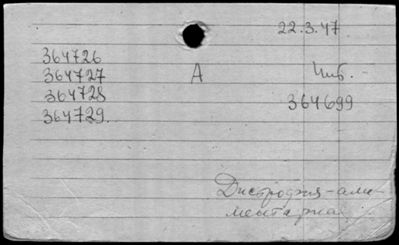 22.3.47.
364726
364727
А
Чиб.
364728
364699
364729.
Дистрофия-али-
ментарная